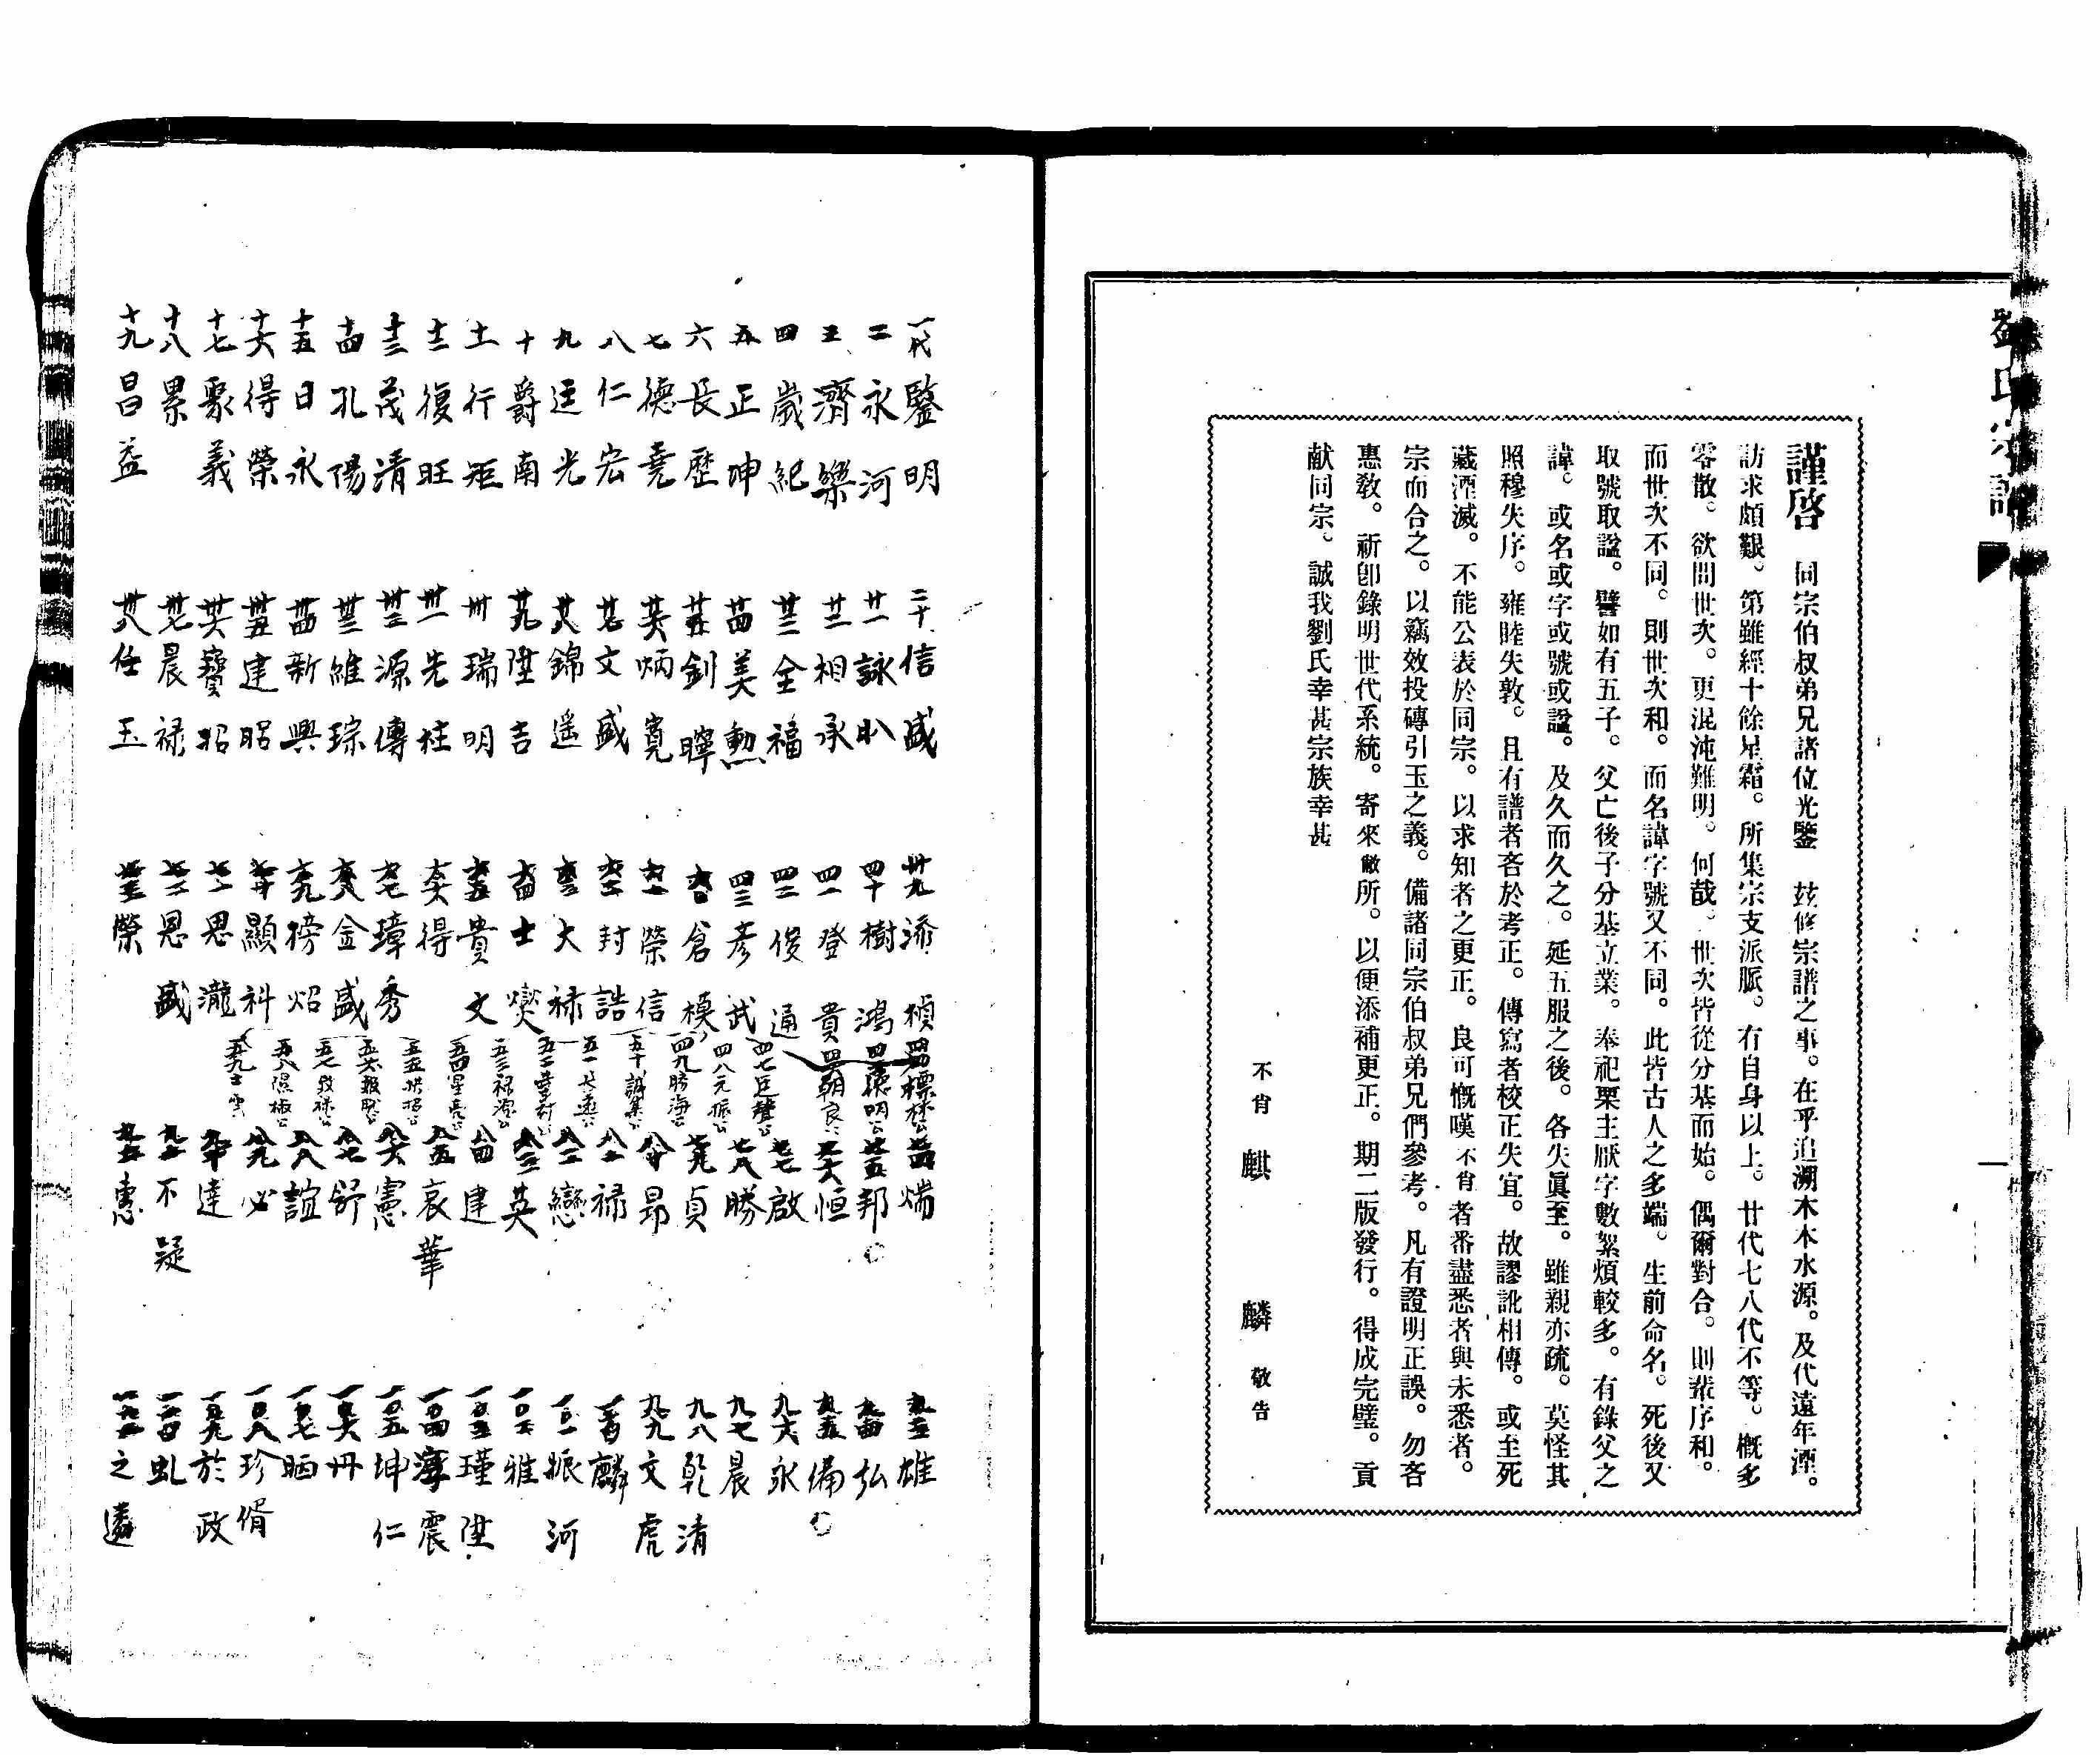 劉氏宗譜
謹啓　同宗伯叔弟兄諸位光鑒　茲修宗譜之事。在乎追溯木本水源。及代遠年湮。
訪求頗艱。第雖經十餘星霜。所集宗支派脈。有自身以上。廿代七八代不等。概多
零散。欲問世次。更混沌難明。何哉。世次皆從分基而始。偶爾對合。則輩序和。
而世次不同。則世次和。而名諱字號又不同。此皆古人之多端。生前命名。死後又
取號取諡。譬如有五子。父亡後子分基立業。奉祀栗主厭字數絮煩較多。有錄父之
諱。或名或字或號或諡。及久而久之。延五服之後。各失眞至。雖親亦疏。莫怪其
照穆失序。雍睦失敦。且有譜者吝於考正。傳寫者校正失宜。故謬訛相傳。或至死
藏湮滅。不能公表於同宗。以求知者之更正。良可慨嘆不肖者番盡悉者與未悉者。
宗而合之。以竊效投磚引玉之義。備諸同宗伯叔弟兄們參考。凡有證明正誤。勿吝
惠教。祈卽錄明世代系統。寄來敝所。以便添補更正。期二版發行。得成完璧。貢
献同宗。誠我劉氏幸甚宗族幸甚
不肖　麒　麟　敬告
一代 鑒明
二 永河
三 濟樂
四 歲紀
五 正坤
六 長歷
七 德堯
八 仁宏
九 廷光
十 爵南
十一 行矩
十二 復旺
十三 茂清
十四 孔陽
十五 日永
十六 得榮
十七 聚義
十八 累
十九 昌益
二十 信盛
廿一 詠
廿二 相承
廿三 全福
廿四 美勳
廿五 釗
廿六 炳寬
廿七 文盛
廿八 錦遥
廿九 陞吉
卅 瑞明
卅一 先柱
卅二 源傳
卅三 維琮
卅四 新興
卅五 建昭
卅六 寶招
卅七 晨禄
卅八 任玉
卅九 添楨
四十 樹鴻
四一 登貴
四二 俊通
四三 彥武
六十 倉模
六十一 榮信
六十二 封誥
六十三 大禄
六十四 士爕
六十五 貴文
六十六 得
六十七 璋秀
六十八 金盛
六十九 榜炤
七十 顯科
七十一 思瀧
七十二 恩盛
七十三 榮
四六朝良公
四七廷聲公
四八元振公
四九勝海公
五十
五一
五二
五三禄
五四星亮公
五五
五六
五七
五八
五九士雲
七十四 煓
七十五 邦
七十六 恒
七十七 啟
七十八 勝
七十九 貞
八十 昂
八十一 禄
八十二 戀
八十三 英
八十四 建
八十五 哀華
八十六 憲
八十七 舒
八十八 誼
八十九 必
九十 達
九十一 不疑
九十二 惠
九十三 雄
九十四 弘
九十五 備
九十六 永
九七 晨
九八 乾清
九九 文虎
一百 麟
一〇一 振河
一〇二 雅
一〇三 瑾陞
一〇四 震
一〇五 坤仁
一〇六 丹
一〇七 晒
一〇八 珍偦
一〇九 於政
一一〇 虬
一一一 之遴